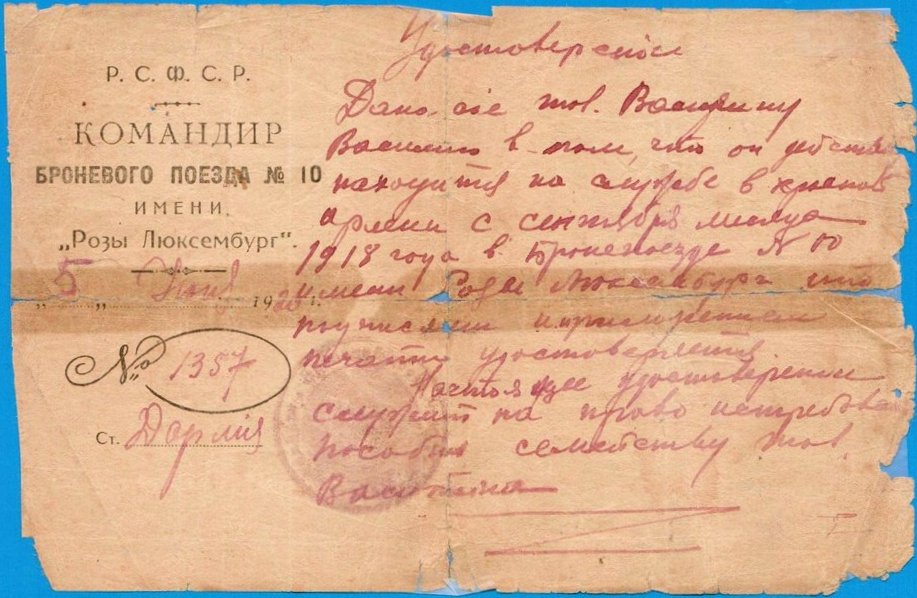 Р. С. Ф. С. Р.
КОМАНДИР
БРОНЕВОГО ПОЕЗДА № 10
ИМЕНИ.
„Розы Люксембург".
„5„ Июня 192 г.
№ 1357
Ст.
Удостоверение
Дано сие тов.
в том, что он
находится на службе в
армии с сентября месяца
1918 года в Бронепоезде N 10
имени Розы Люксембург что
подписями и приложением
печати удостоверяется
Настоящее удостоверение
служит на право
пособия семейству тов.